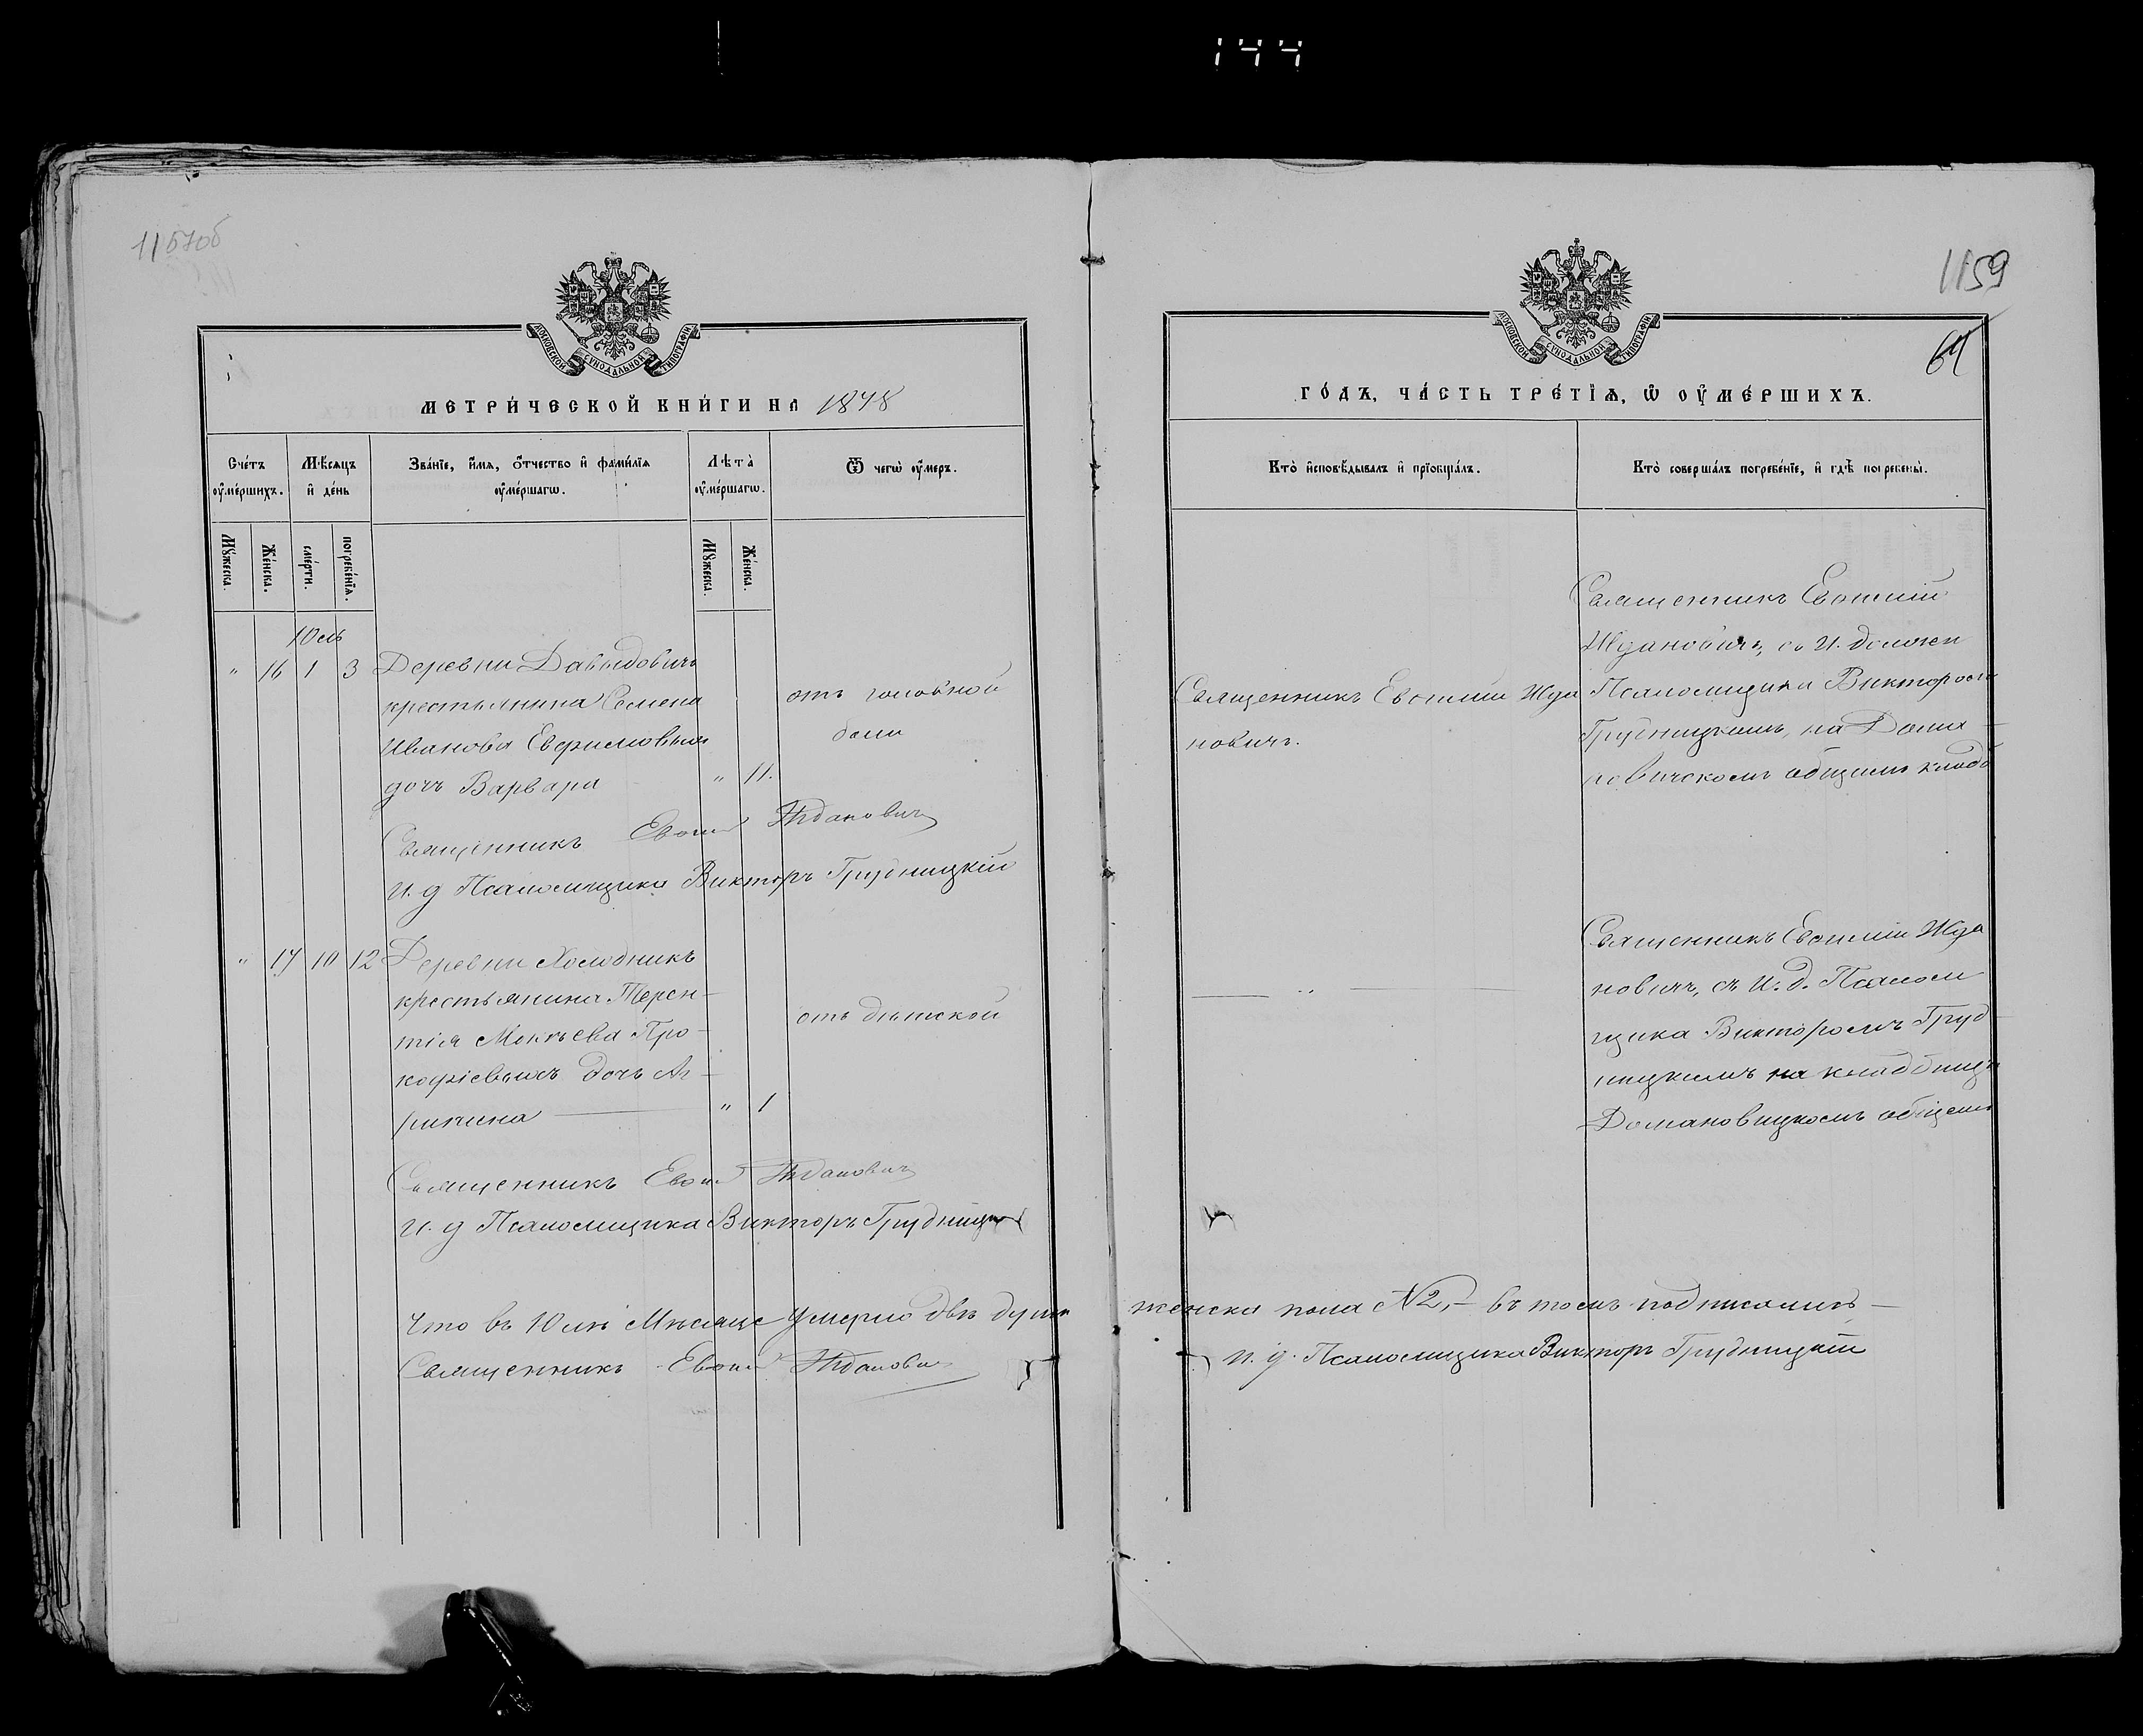 144
1159
64
МОСКОВСКОЙ СУНОДАЛЬНОЙ ТИПОГРАФІИ
МЕТРИ́ЧЕСКОЙ КНИ́ГИ НА 1878
Сче́тъ оу҆ме́ршихъ.
Мѣ́сѧцъ и҆ де́нь
Зва́нїе, и҆́мѧ, ѻ҆́тчество и҆ фами́лїѧ оу҆ме́ршагѡ.
Лѣта̀ оу҆ме́ршагѡ.
Ѿ чегѡ̀ оу҆́меръ.
Мꙋ́жеска.
Же́нска.
сме́рти.
погребе́нїѧ.
Мꙋ́жеска.
Же́нска.
Юль
" 16 1 3 Деревни Давыдовичъ
крестьянина Семена
Иванова Ефимовыхъ
дочъ Варвара " 11.
отъ головной
боли
Священникъ Жданович
И. д Псаломщика Викторъ Грудницкій
" 17 10 12 Деревни Холодникъ
крестьянина Терен-
тія Мокѣева Про-
кофіевыхъ дочь Аг-
рипина " 1
отъ дѣтской
Священникъ Жданович
И. д Псаломщика Викторъ Грудницкій
Что въ Юлѣ Мѣсяце Умерло двѣ души
Священникъ Жданович
МОСКОВСКОЙ СУНОДАЛЬНОЙ ТИПОГРАФІИ
ГО́ДЪ, ЧА́СТЬ ТРЕ́ТЇѦ, Ѡ҆ ОУ҆МЕ́РШИХЪ.
Кто̀ и҆сповѣ́дывалъ и҆ прїѡбща́лъ.
Кто̀ соверша́лъ погребе́нїе, и҆ гдѣ̀ погребены̀.
Священникъ Евфимій Жда
новичъ.
Священникъ Евфимій
Ждановичъ, съ И. должн
Псаломщика Викторомъ
Грудницкимъ, на Дома-
новичскомъ общемъ кладб
— " —
Священникъ Евфимій Жда
новичъ, съ И. д. Псалом
щика Викторомъ Груд
ницкимъ на кладбищѣ
Домановицкомъ общемъ
женска пола №2,- въ томъ подписомъ-
И. д. Псаломщика Викторъ Грудницкій